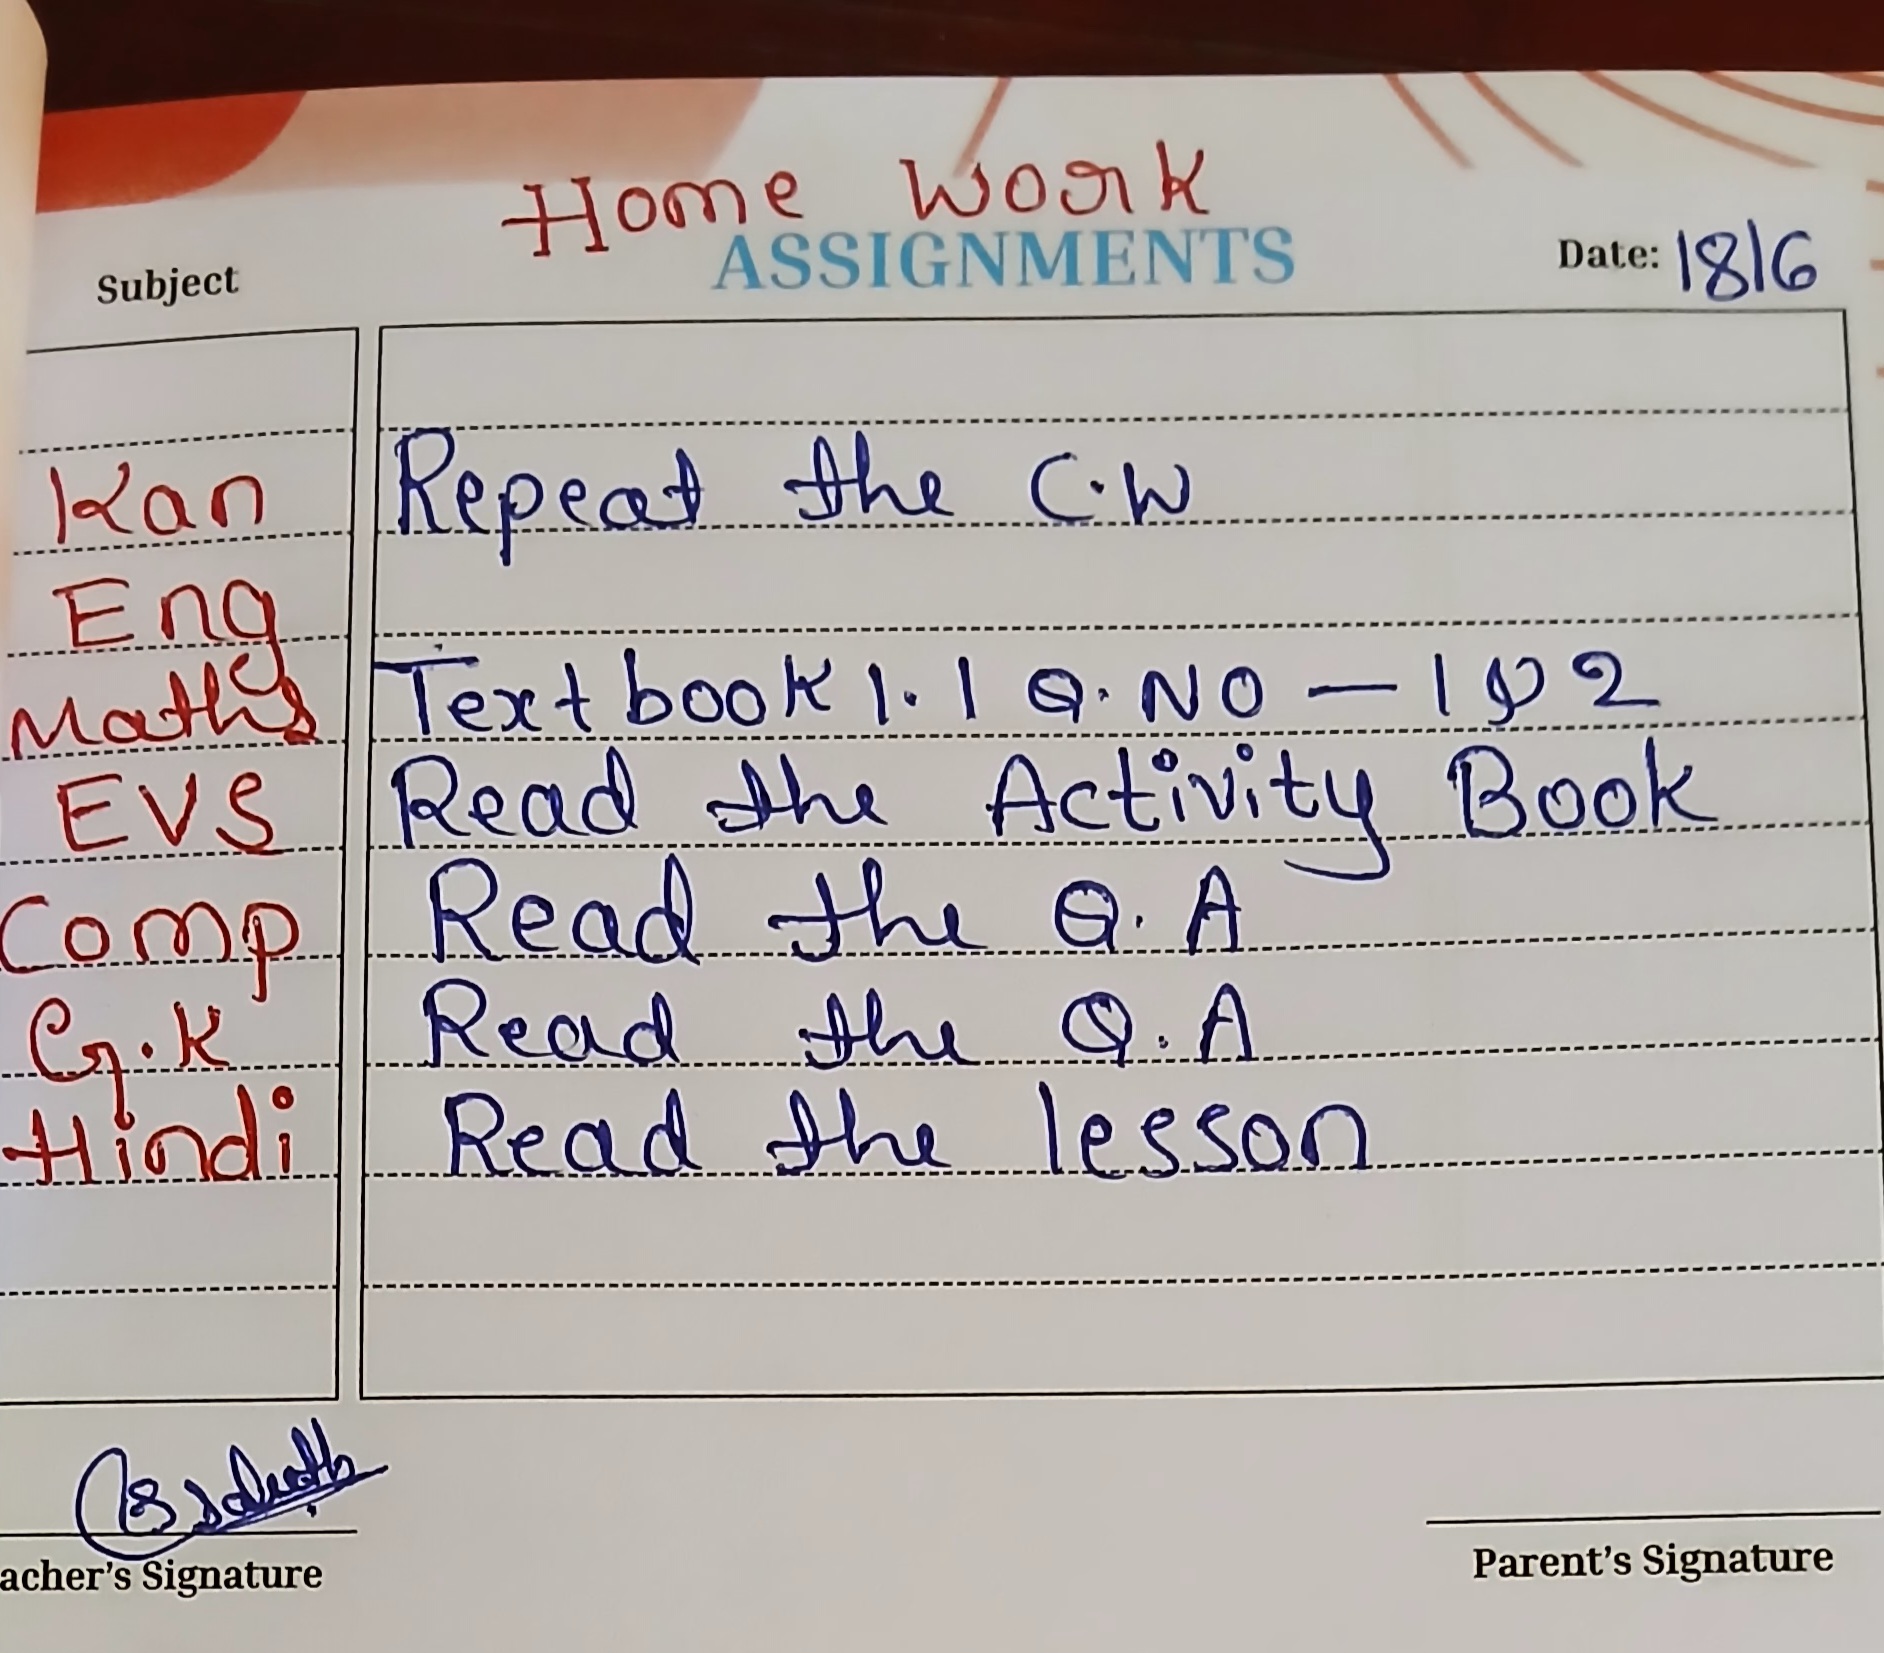 Home Work
Subject ASSIGNMENTS Date: 18/6
Kan Repeat the C.W
Eng
Maths Textbook 1.1 Q.NO — 1 & 2
EVS Read the Activity Book
Comp Read the Q.A
G.K Read the Q.A
Hindi Read the lesson
acher's Signature Parent's Signature